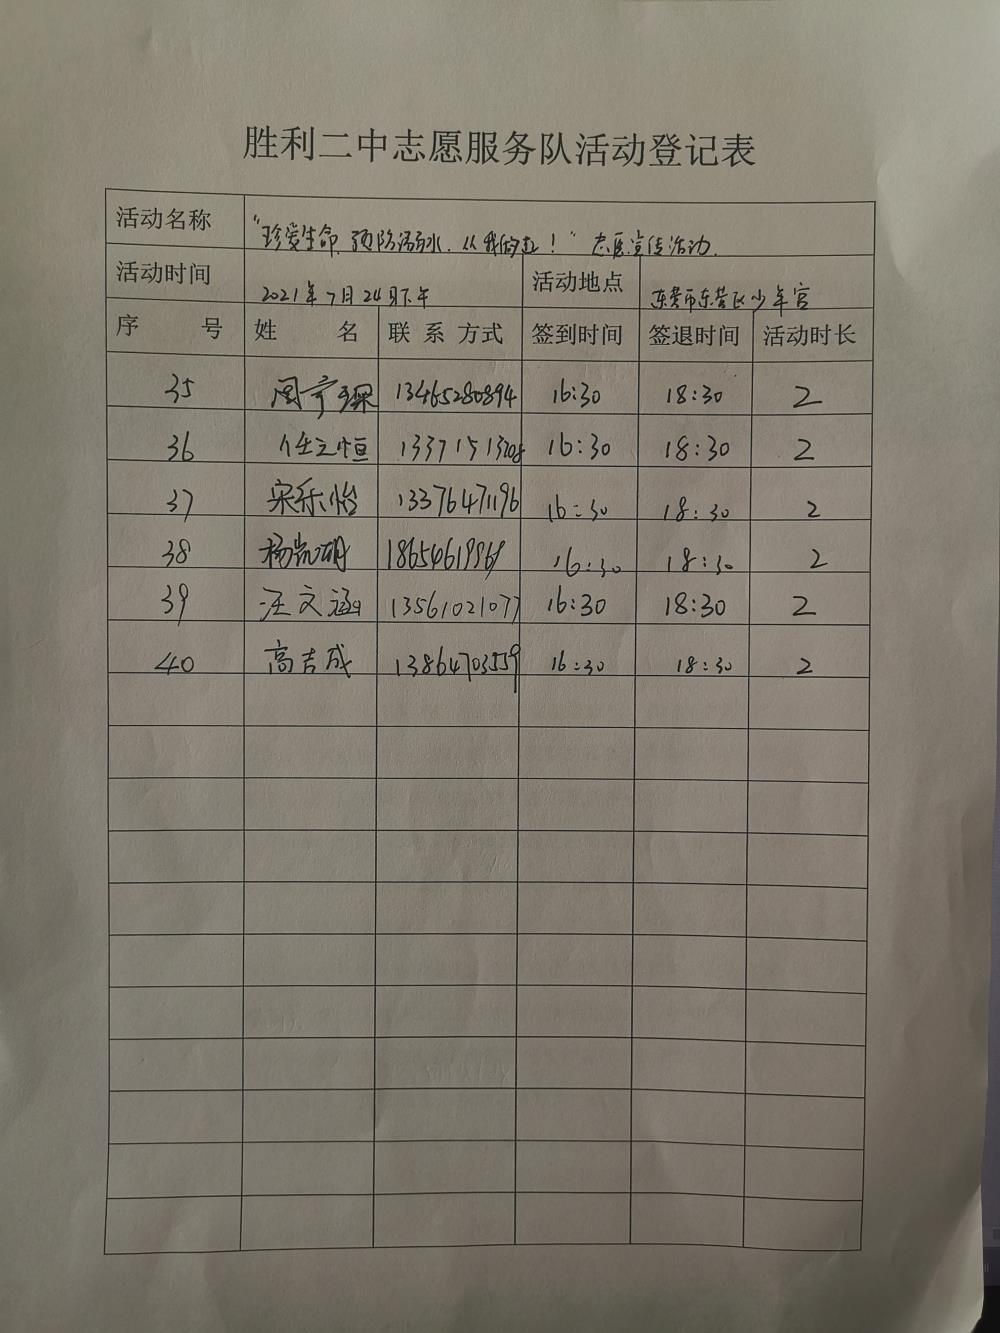 胜利二中志愿服务队活动登记表
活动名称 "珍爱生命 预防溺水.从我做起!" 志愿宣传活动.
活动时间 2021年7月24日下午 活动地点 东营市东营区少年宫
序 号 姓 名 联系方式 签到时间 签退时间 活动时长
35 13465280894 16:30 18:30 2
36 任之恒 16:30 18:30 2
37 宋乐怡 13376471196 16:30 18:30 2
38 18654619969 16:30 18:30 2
39 汪文涵 13561021077 16:30 18:30 2
40 高吉成 13864703559 16:30 18:30 2